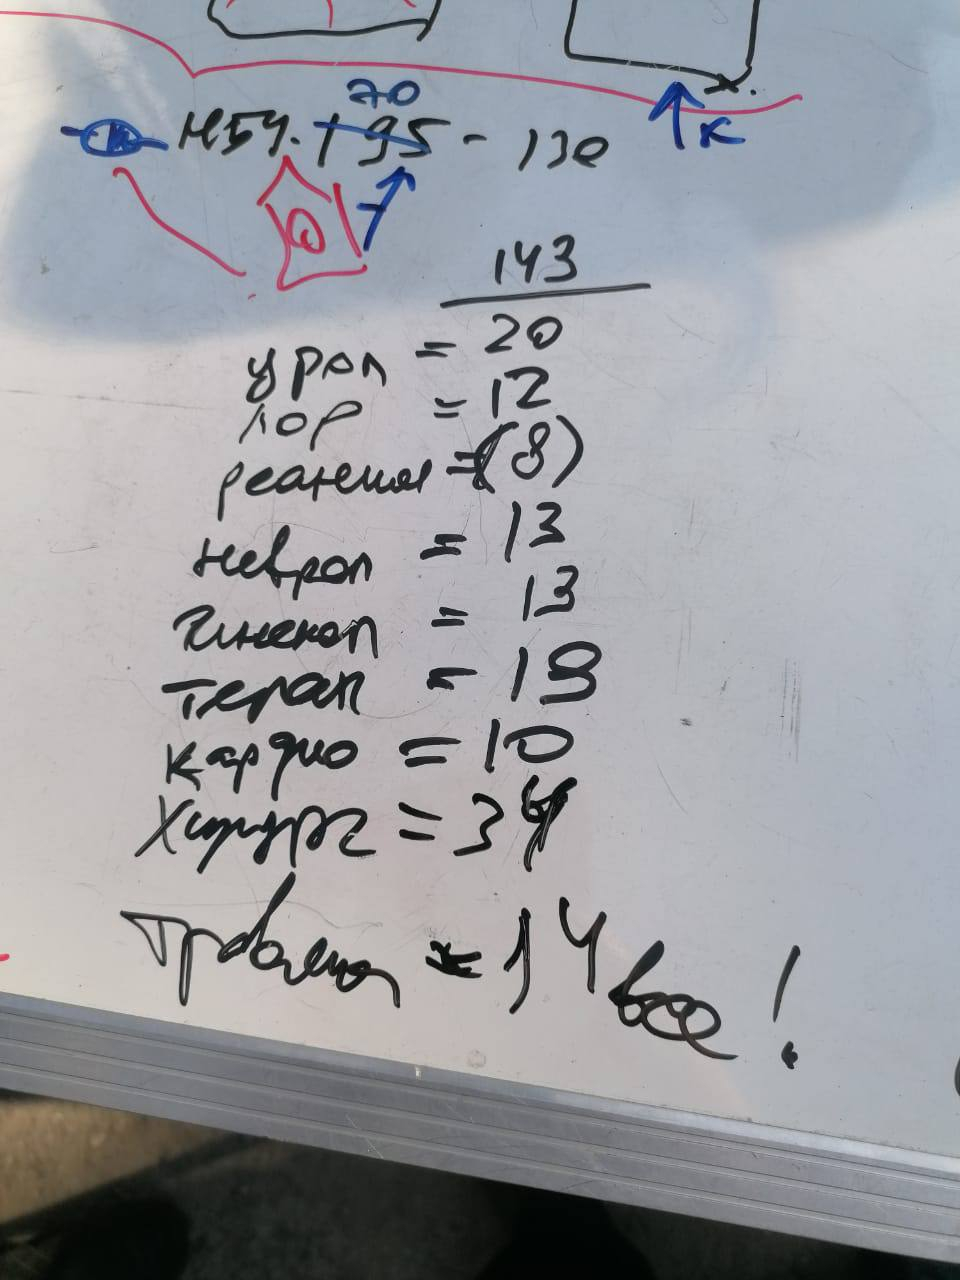 70
НБУ. 195 - 130
К
143
урол = 20
лор = 12
реаним = (8)
неврол = 13
гинекол = 13
терап = 19
кардио = 10
Хирург = 34
травма = 14 все!